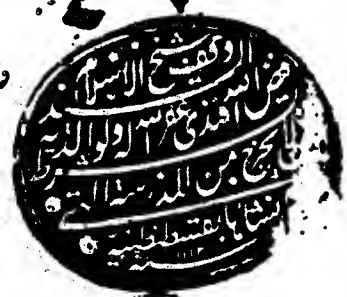 وقف شيخ الاسلام
فيض الله افندى غفر الله له ولوالديه
بشرط ان لا يخرج من المدرسة التى
انشأها بقسطنطينية
سنة ١١١٣